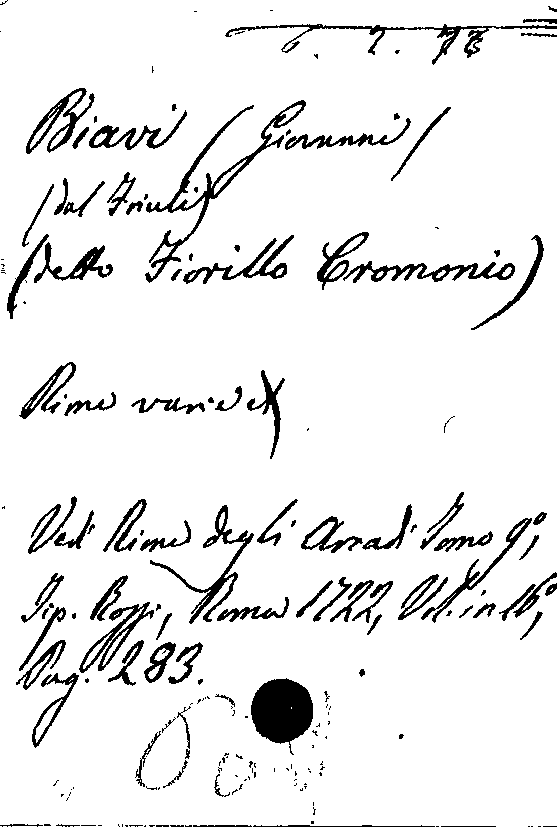 6. 2. 73
Biavi (Giovanni)
(dal Friuli)
(detto Fiorillo Cromonio)
Rime varie
Vedi Rime degli Arcadi Tomo 9°,
Tip. Rossi, Roma 1722, Vol. in 16°,
Pag. 283.